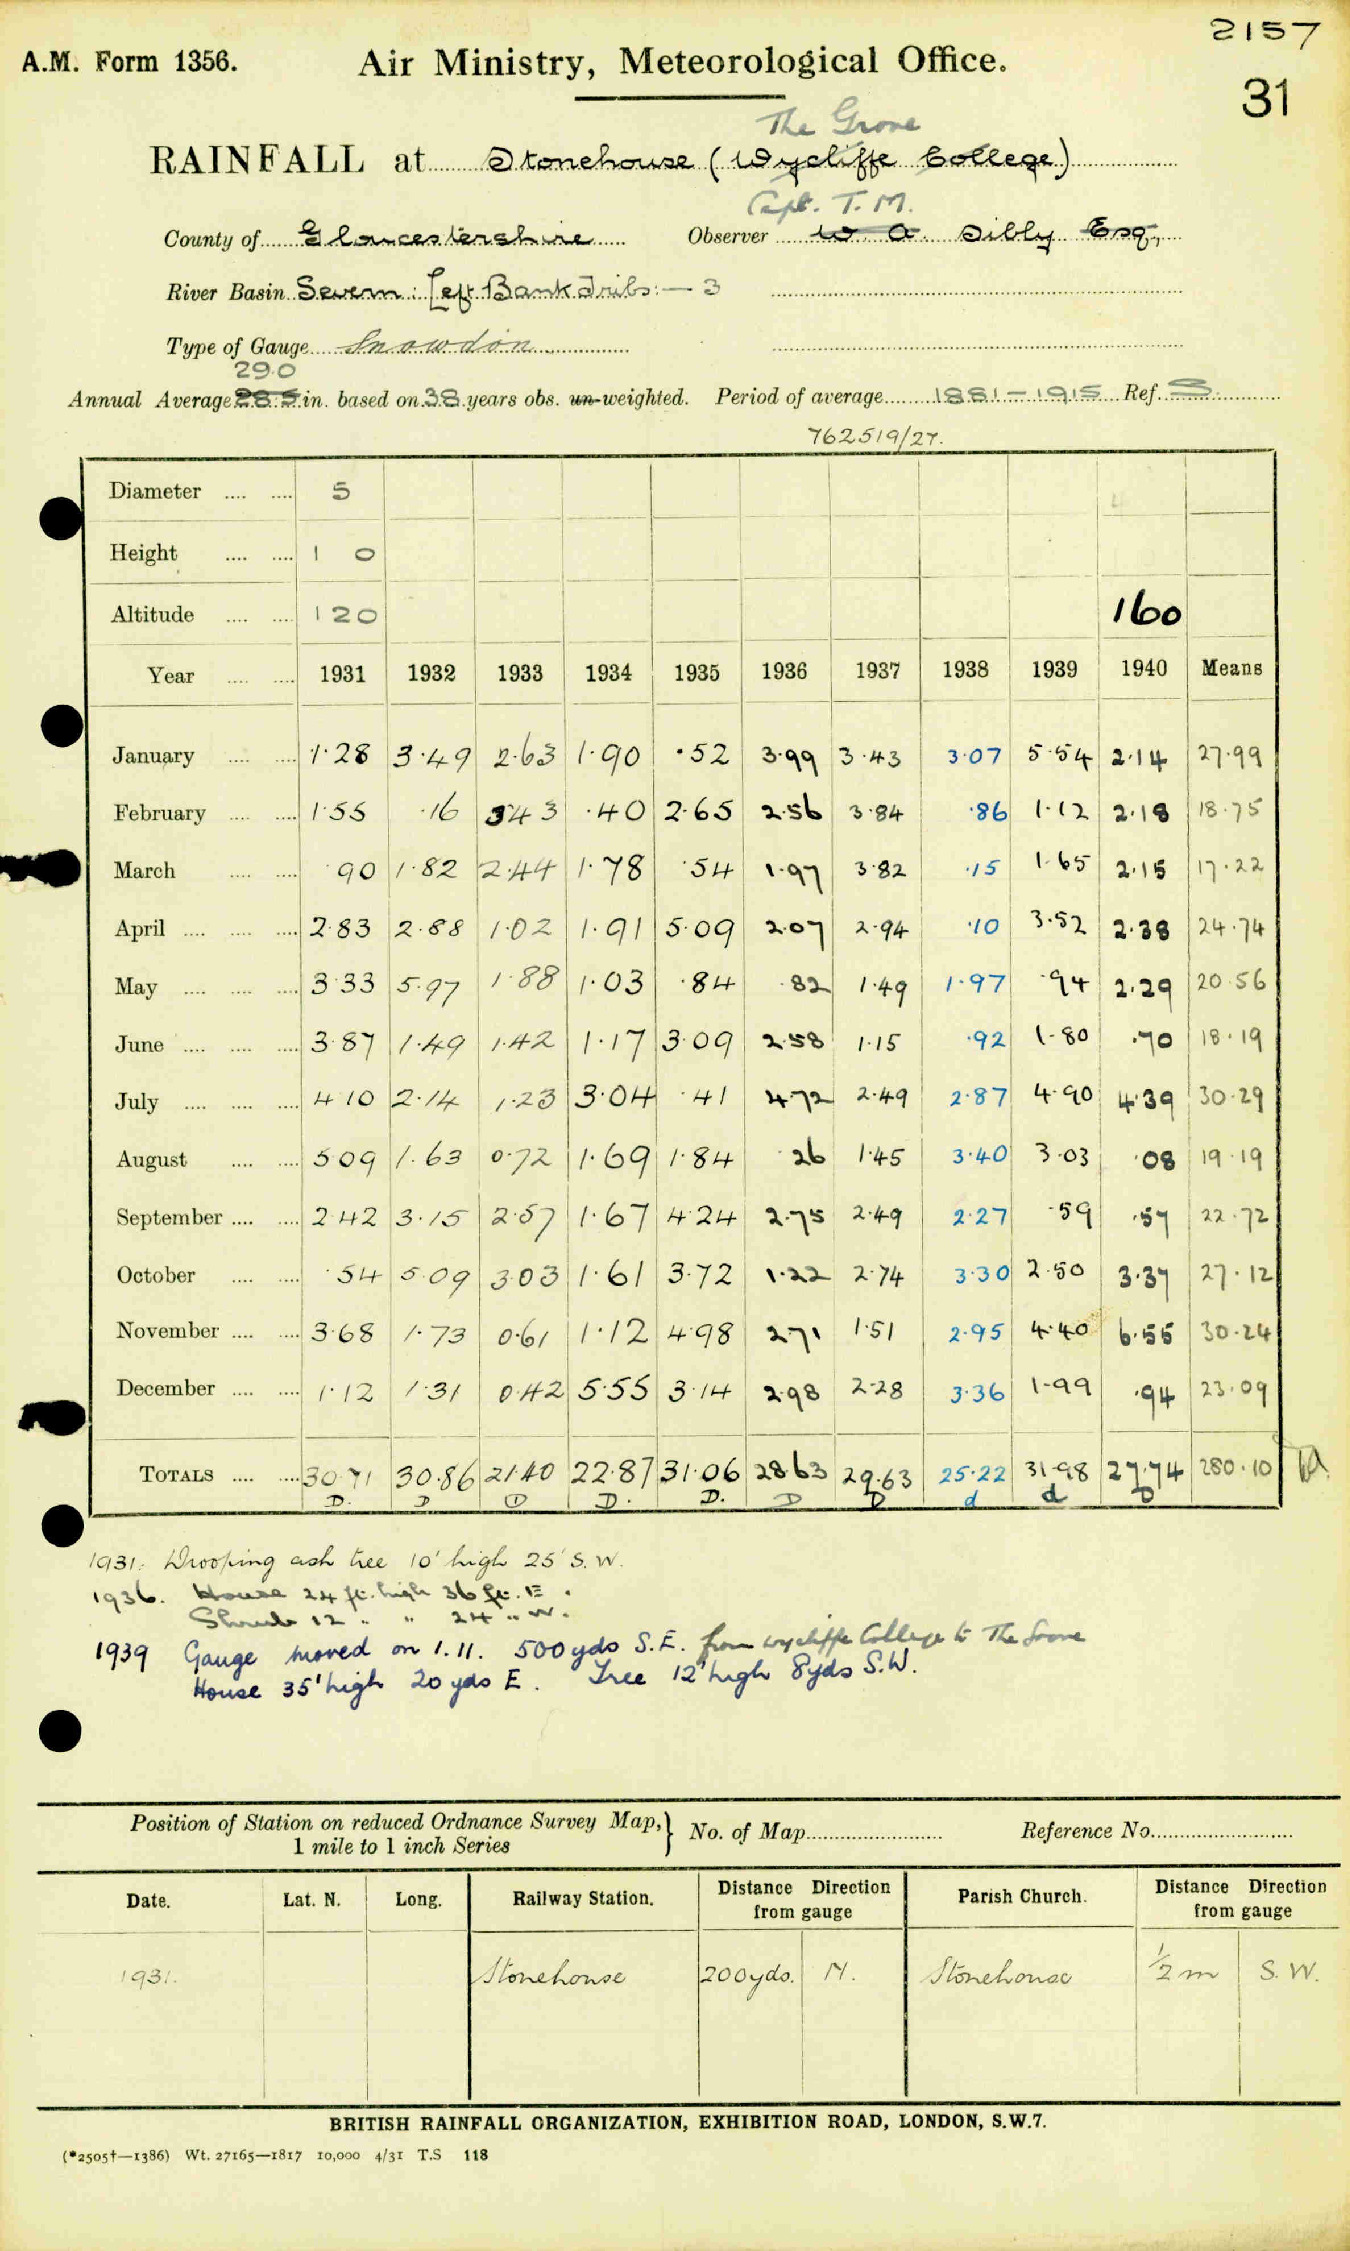 2157
A.M. Form 1356. Air Ministry, Meteorological Office.
31
The Grove
RAINFALL at Stonehouse (Wycliffe College)
Capt. T. M.
County of Gloucestershire Observer W. A. Sibly Esq,
River Basin Severn : Left Bank Tribs :— 3
Type of Gauge Snowdon
29.0
Annual Average 28.5 in. based on 38 years obs. un-weighted. Period of average 1881-1915 Ref. S
762519/27.
Diameter .... .... 5
Height .... .... 1 0
Altitude .... .... 120 160
Year .... .... 1931 1932 1933 1934 1935 1936 1937 1938 1939 1940 Means
January .... .... 1.28 3.49 2.63 1.90 .52 3.99 3.43 3.07 5.54 2.14 27.99
February .... .... 1.55 .16 3.43 .40 2.65 2.56 3.84 .86 1.12 2.18 18.75
March .... .... .90 1.82 2.44 1.78 .54 1.97 3.82 .15 1.65 2.15 17.22
April .... .... .... 2.83 2.88 1.02 1.91 5.09 2.07 2.94 .10 3.52 2.38 24.74
May .... .... .... 3.33 5.97 1.88 1.03 .84 .82 1.49 1.97 .94 2.29 20.56
June .... .... .... 3.87 1.49 1.42 1.17 3.09 2.58 1.15 .92 1.80 .70 18.19
July .... .... .... 4.10 2.14 1.23 3.04 .41 4.72 2.49 2.87 4.90 4.39 30.29
August .... .... 5.09 1.63 0.72 1.69 1.84 .26 1.45 3.40 3.03 .08 19.19
September .... .... 2.42 3.15 2.57 1.67 4.24 2.75 2.49 2.27 .59 .57 22.72
October .... .... .54 5.09 3.03 1.61 3.72 1.22 2.74 3.30 2.50 3.37 27.12
November .... .... 3.68 1.73 0.61 1.12 4.98 2.71 1.51 2.95 4.40 6.55 30.24
December .... .... 1.12 1.31 0.42 5.55 3.14 2.98 2.28 3.36 1.99 .94 23.09
TOTALS .... .... 30.71 30.86 21.40 22.87 31.06 28.63 29.63 25.22 31.98 27.74 280.10
D. D D D. D. D D d d D
1931. Drooping ash tree 10' high 25' S.W.
1936. House 24 ft. high 36 ft. E.
Shrub 12 " " 24 " W.
1939 Gauge moved on 1.11. 500 yds S.E. from Wycliffe College to The Grove
House 35' high 20 yds E. Tree 12' high 8 yds S.W.
Position of Station on reduced Ordnance Survey Map,} No. of Map Reference No.
1 mile to 1 inch Series
Date. Lat. N. Long. Railway Station. Distance Direction from gauge Parish Church. Distance Direction from gauge
1931. Stonehouse 200 yds. N. Stonehouse 1/2 m S.W.
BRITISH RAINFALL ORGANIZATION, EXHIBITION ROAD, LONDON, S.W.7.
(*2505†—1386) Wt. 27165—1817 10,000 4/31 T.S 118